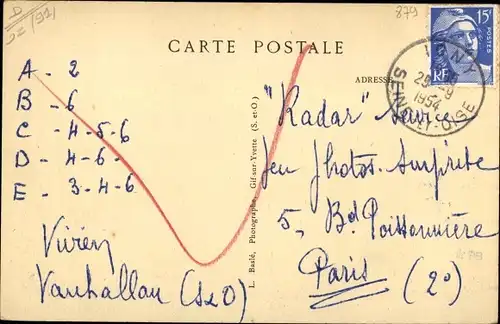 D
879
CARTE POSTALE
15F
POSTES
RF
IGNY
25-9
1954
SEINE-ET-OISE
ADRESSE
A - 2
B - 6
C - 4-5-6
D - 4-6-
E - 3-4-6
Vivien
Vauhallan (S&O)
L. Baslé, Photographe, Gif-sur-Yvette (S.-et-O.)
"Radar" Service
Jeu Photos-Surprise
5, Bd Poissonnière
Paris (2º)